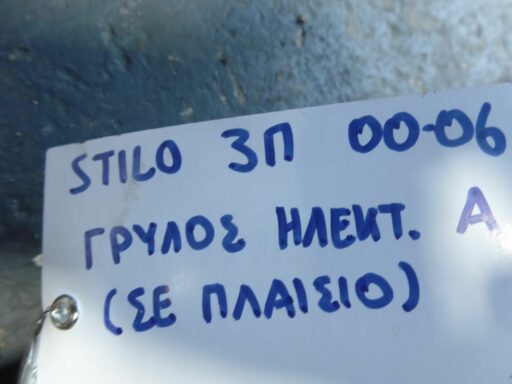 STILO 3Π 00-06
ΓΡΥΛΟΣ ΗΛΕΚΤ. Α
(ΣΕ ΠΛΑΙΣΙΟ)